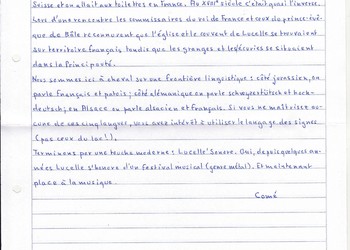 Suisse et on allait aux toilettes en France. Au XVIIIe siècle c'était quoi l'inverse.
Lors d'une rencontre les commissaires du roi de France et ceux du prince-évê-
que de Bâle reconnurent que l'église et le couvent de Lucelle se trouvaient
sur territoire français, tandis que les granges et les écuries se situaient
dans la Principauté.
Nous sommes ici à cheval sur une frontière linguistique: côté jurassien, on
parle français et patois; côté alémanique on parle schwyzertütsch et hoch-
deutsch; en Alsace on parle alsacien et français. Si vous ne maîtrisez au-
cune de ces cinq langues, vous avez intérêt à utiliser le langage des signes
(pas ceux du lac!).
Terminons par une touche moderne: Lucelle Sonore. Oui, depuis quelques an-
nées Lucelle s'honore d'un festival musical (genre métal). Et maintenant
place à la musique.
Comé